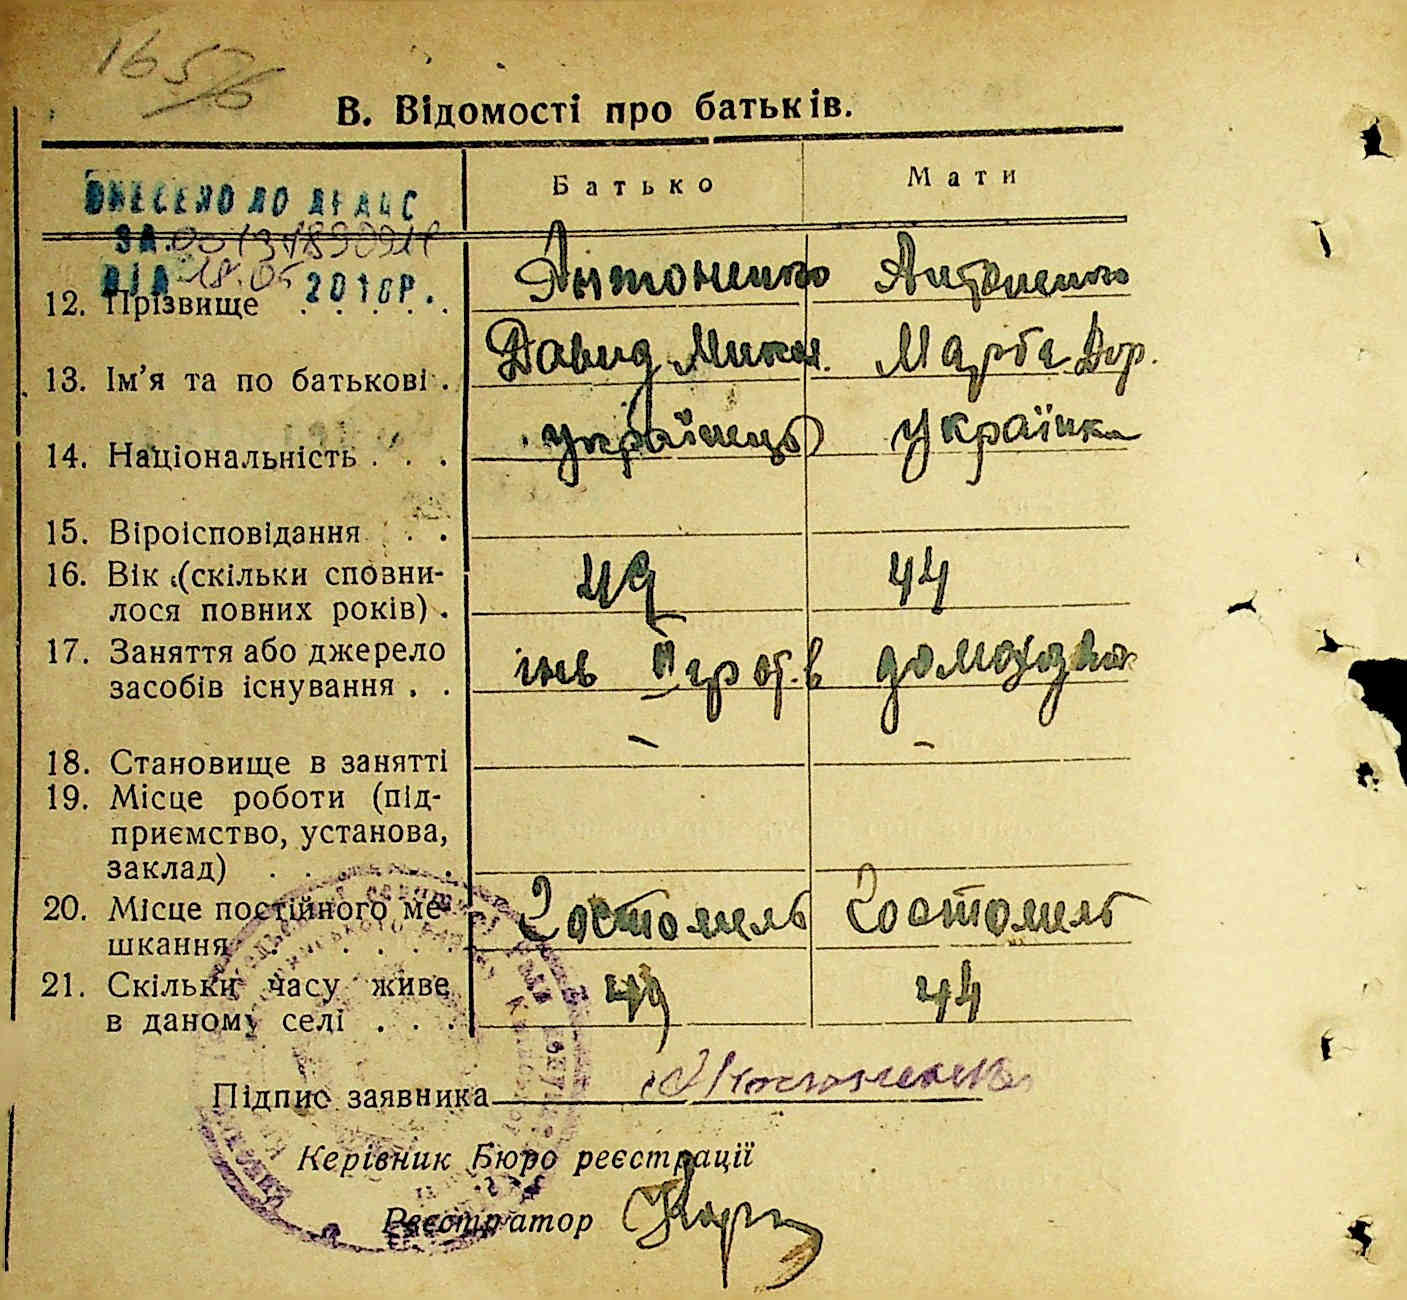 1656
В. Відомості про батьків.
Батько Мати
ВНЕСЕНО ДО ДРАЦС
ЗА
ВІД 18.05 2018Р.
12. Прізвище . . . . . Антоненко Антоненко
13. Ім’я та по батькові . Давид Микол. Марфа Дор.
14. Національність . . . українець українка
15. Віроісповідання . . .
16. Вік (скільки сповни-
лося повних років) . 49 44
17. Заняття або джерело
засобів існування . . інв домохозяйка
18. Становище в занятті – –
19. Місце роботи (під-
приємство, установа,
заклад) . . . . .
20. Місце постійного ме-
шкання . . . . . Гостомель Гостомель
21. Скільки часу живе
в даному селі . . . 49 44
Підпис заявника Антоненко
Керівник Бюро реєстрації
Реєстратор